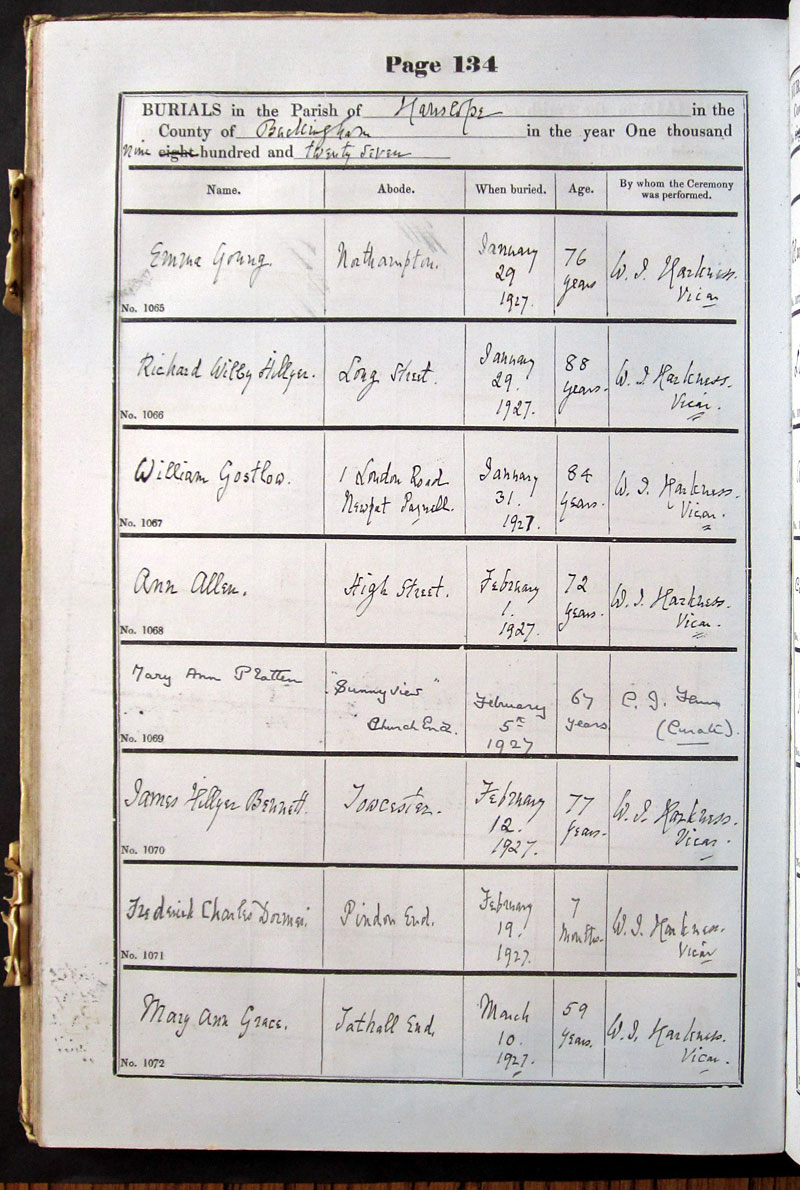 Page 134
BURIALS in the Parish of Hanslope in the
County of Buckingham in the year One thousand
nine eight hundred and twenty seven
Name. Abode. When buried. Age. By whom the Ceremony was performed.
Emma Young. Northampton. January 29 1927. 76 years W. J. Harkness. Vicar
No. 1065
Richard Wilby Hillyer. Long Street. January 29. 1927. 88 years. W. J. Harkness. Vicar.
No. 1066
William Gostlow. 1 London Road Newport Pagnell. January 31. 1927. 84 years. W. J. Harkness. Vicar.
No. 1067
Ann Allen. High Street. February 1. 1927. 72 years. W. J. Harkness. Vicar.
No. 1068
Mary Ann Platten "Sunny View" Church End. February 5th 1927 67 years C. J. (Curate).
No. 1069
James Hillyer Bennett. Towcester. February 12. 1927. 77 years. W. J. Harkness. Vicar.
No. 1070
Frederick Charles Dormer. Pindon End. February 19. 1927. 7 months. W. J. Harkness. Vicar
No. 1071
Mary Ann Grace. Tathall End. March 10. 1927. 59 years. W. J. Harkness. Vicar.
No. 1072